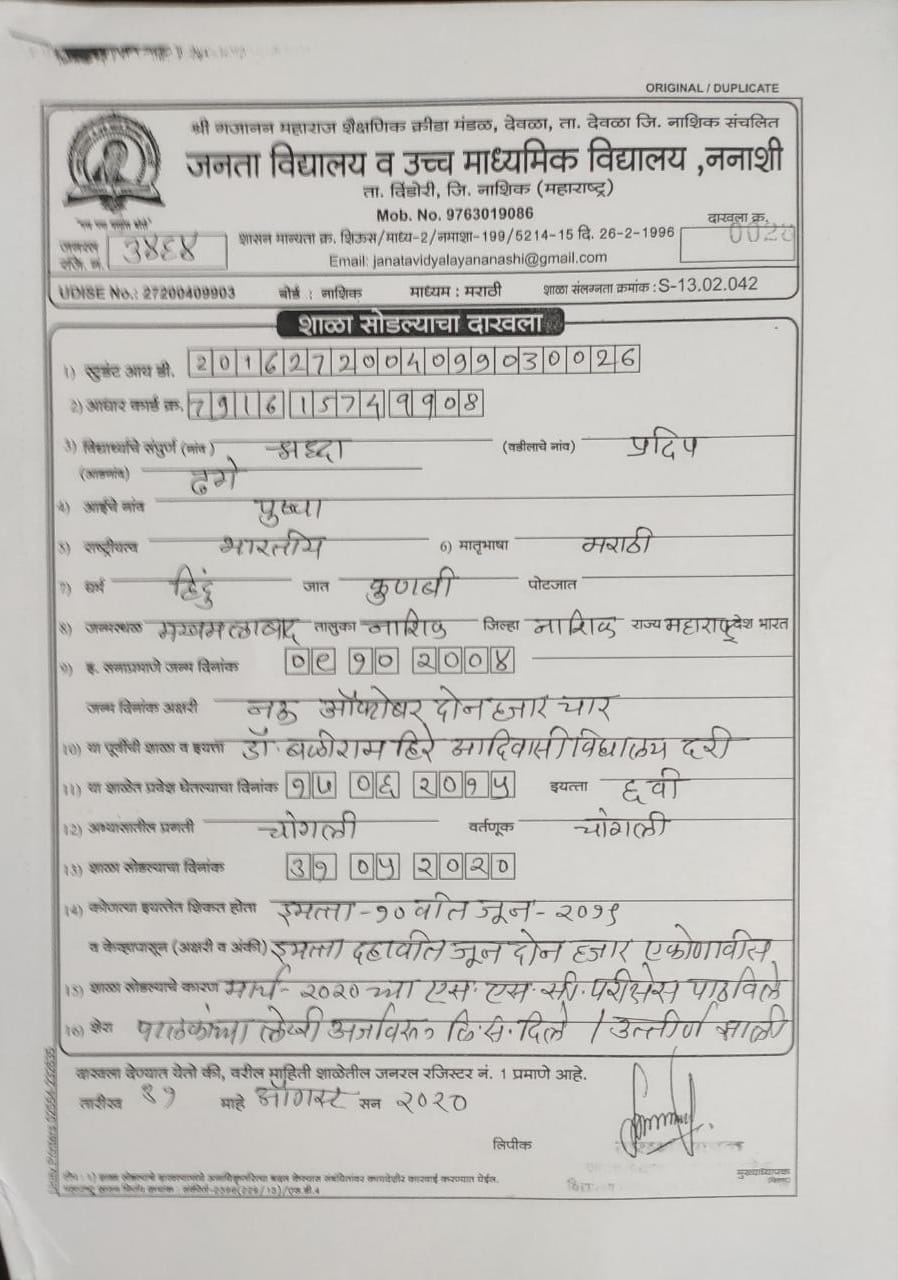 ORIGINAL / DUPLICATE
श्री गजानन महाराज शैक्षणिक क्रीडा मंडळ, देवळा, ता. देवळा जि. नाशिक संचलित
जनता विद्यालय व उच्च माध्यमिक विद्यालय ,ननाशी
ता. दिंडोरी, जि. नाशिक (महाराष्ट्र)
Mob. No. 9763019086
दाखला क्र.
जनरल रजि. नं. ३४६४ शासन मान्यता क्र. शिऊस/माध्य-2/नमाशा-199/5214-15 दि. 26-2-1996
Email: janatavidyalayananashi@gmail.com
UDISE No.: 27200409903 बोर्ड : नाशिक माध्यम : मराठी शाळा संलग्नता क्रमांक : S-13.02.042
शाळा सोडल्याचा दाखला
1) स्टुडंट आय डी. 2016272004099030026
2) आधार कार्ड क्र. 7916 1574 9908
3) विद्यार्थ्याचे संपुर्ण (नांव) श्रध्दा (वडीलाचे नांव) प्रदिप
(आडनांव) ढगे
4) आईचे नांव पुष्पा
5) राष्ट्रीयत्व भारतीय 6) मातृभाषा मराठी
7) धर्म हिंदु जात कुणबी पोटजात
8) जन्मस्थळ मखमलाबाद तालुका नाशिक जिल्हा नाशिक राज्य महाराष्ट्र देश भारत
9) इ. सनाप्रमाणे जन्म दिनांक ०९ १० २००४
जन्म दिनांक अक्षरी नऊ ऑक्टोबर दोन हजार चार
10) या पूर्वीची शाळा व इयत्ता डॉ. बळीराम हिरे आदिवासी विद्यालय दरी
11) या शाळेत प्रवेश घेतल्याचा दिनांक १५ ०६ २०१५ इयत्ता ६वी
12) अभ्यासातील प्रगती चांगली वर्तणूक चांगली
13) शाळा सोडल्याचा दिनांक ३१ ०५ २०२०
14) कोणत्या इयत्तेत शिकत होता इयत्ता - १० वीत जून - २०१९
व केव्हापासून (अक्षरी व अंकी) इयत्ता दहावीत जून दोन हजार एकोणावीस
15) शाळा सोडल्याचे कारण मार्च - २०२० च्या एस. एस. सी. परीक्षेस पाठविले
16) शेरा पालकांच्या लेखी अर्जावरून दिले / उत्तीर्ण झाली
दाखला देण्यात येतो की, वरील माहिती शाळेतील जनरल रजिस्टर नं. 1 प्रमाणे आहे.
तारीख माहे ऑगस्ट सन २०२०
लिपीक
मुख्याध्यापक